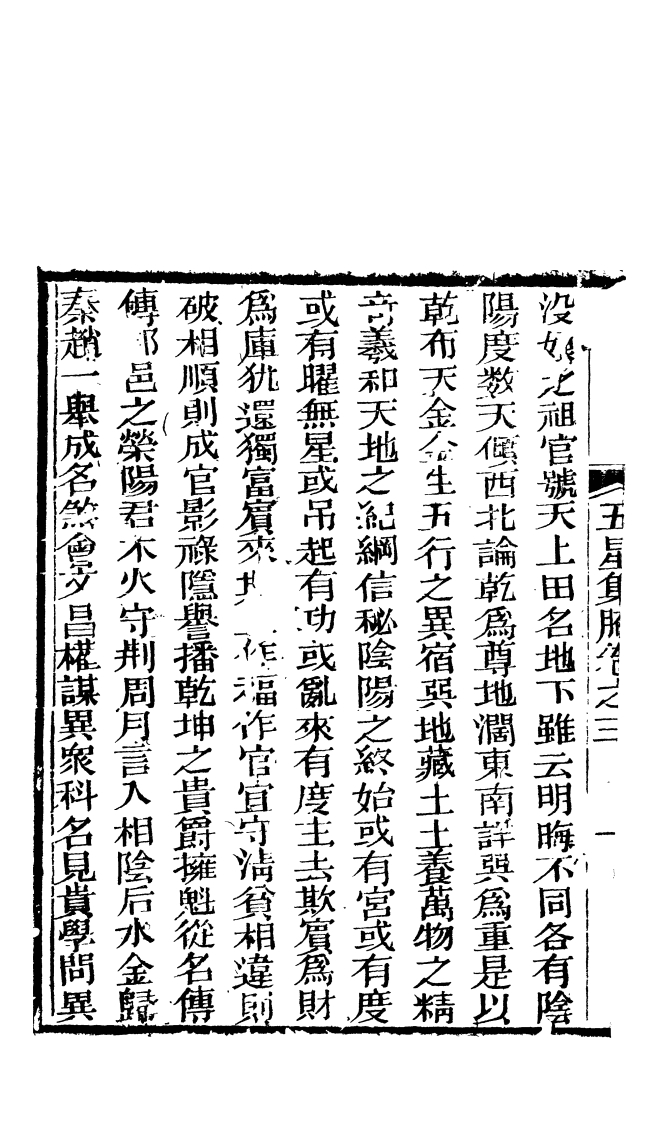 五星集腋卷之三 一
没如之祖官號天上田名地下雖云明晦不同各有陰
陽度数天傾西北論乾爲尊地濶東南詳巽爲重是以
乾布天金金生五行之異宿巽地藏土土養萬物之精
竒羲和天地之紀綱信秘陰陽之終始或有宮或有度
或有曜無星或吊起有功或亂來有度主去欺賓爲財
爲庫犹還獨富賓來作福作官宜守清貧相違則
破相順則成官影祿隱譽播乾坤之貴爵擁魁從名傳
傅邑之榮陽君木火守荆周月言入相陰后水金歸
秦趙一舉成名煞會文昌權謀異衆科名見貴學問異